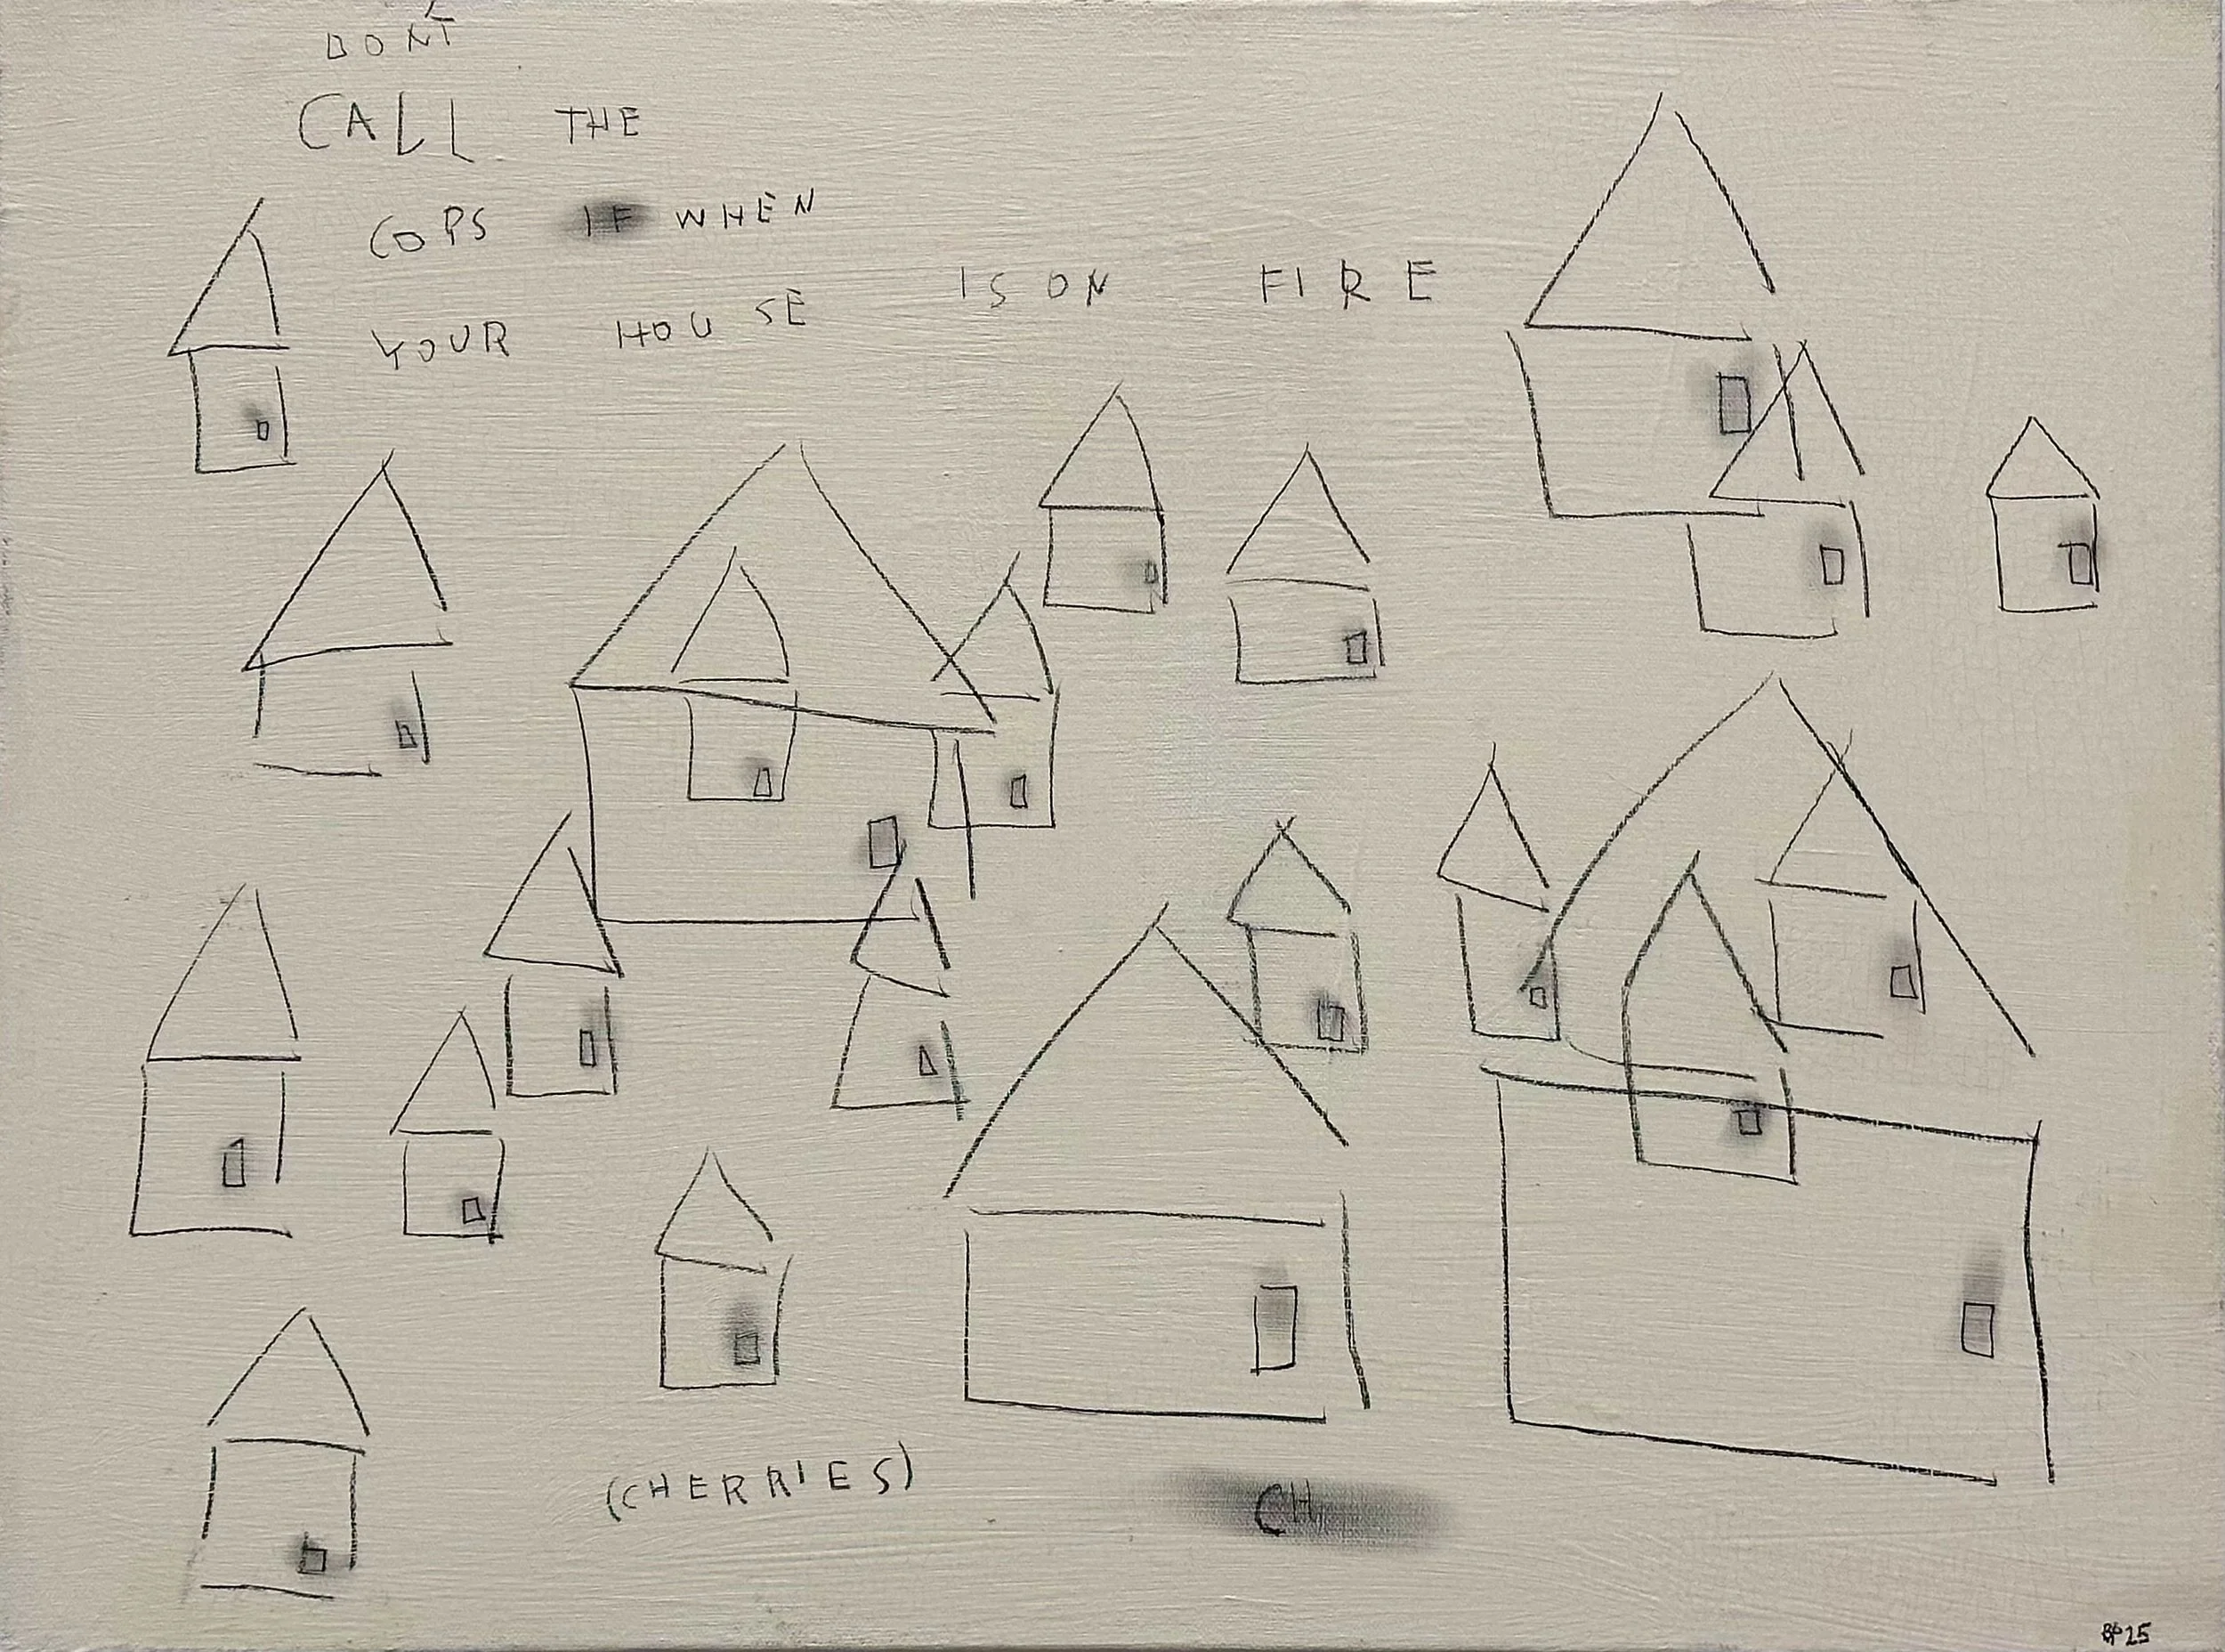 DON'T
CALL THE
COPS IF WHEN
YOUR HOUSE IS ON FIRE
(CHERRIES) CH
BP25